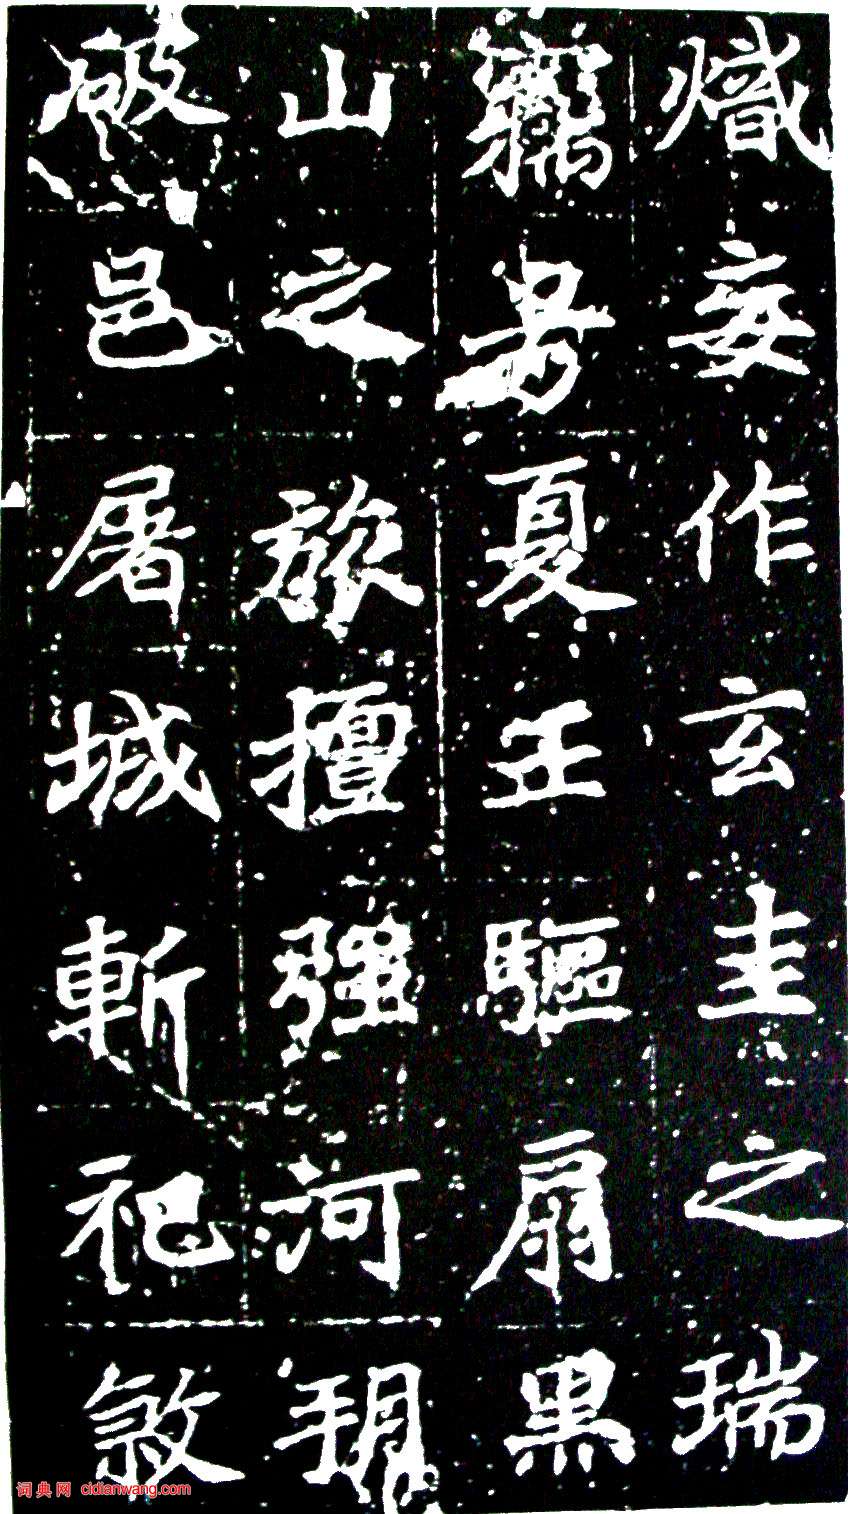 熾妄作玄圭之瑞
竊号夏王驅扇黑
山之旅擅强河朔
破邑屠城斬祀
词典网 cidianwang.com